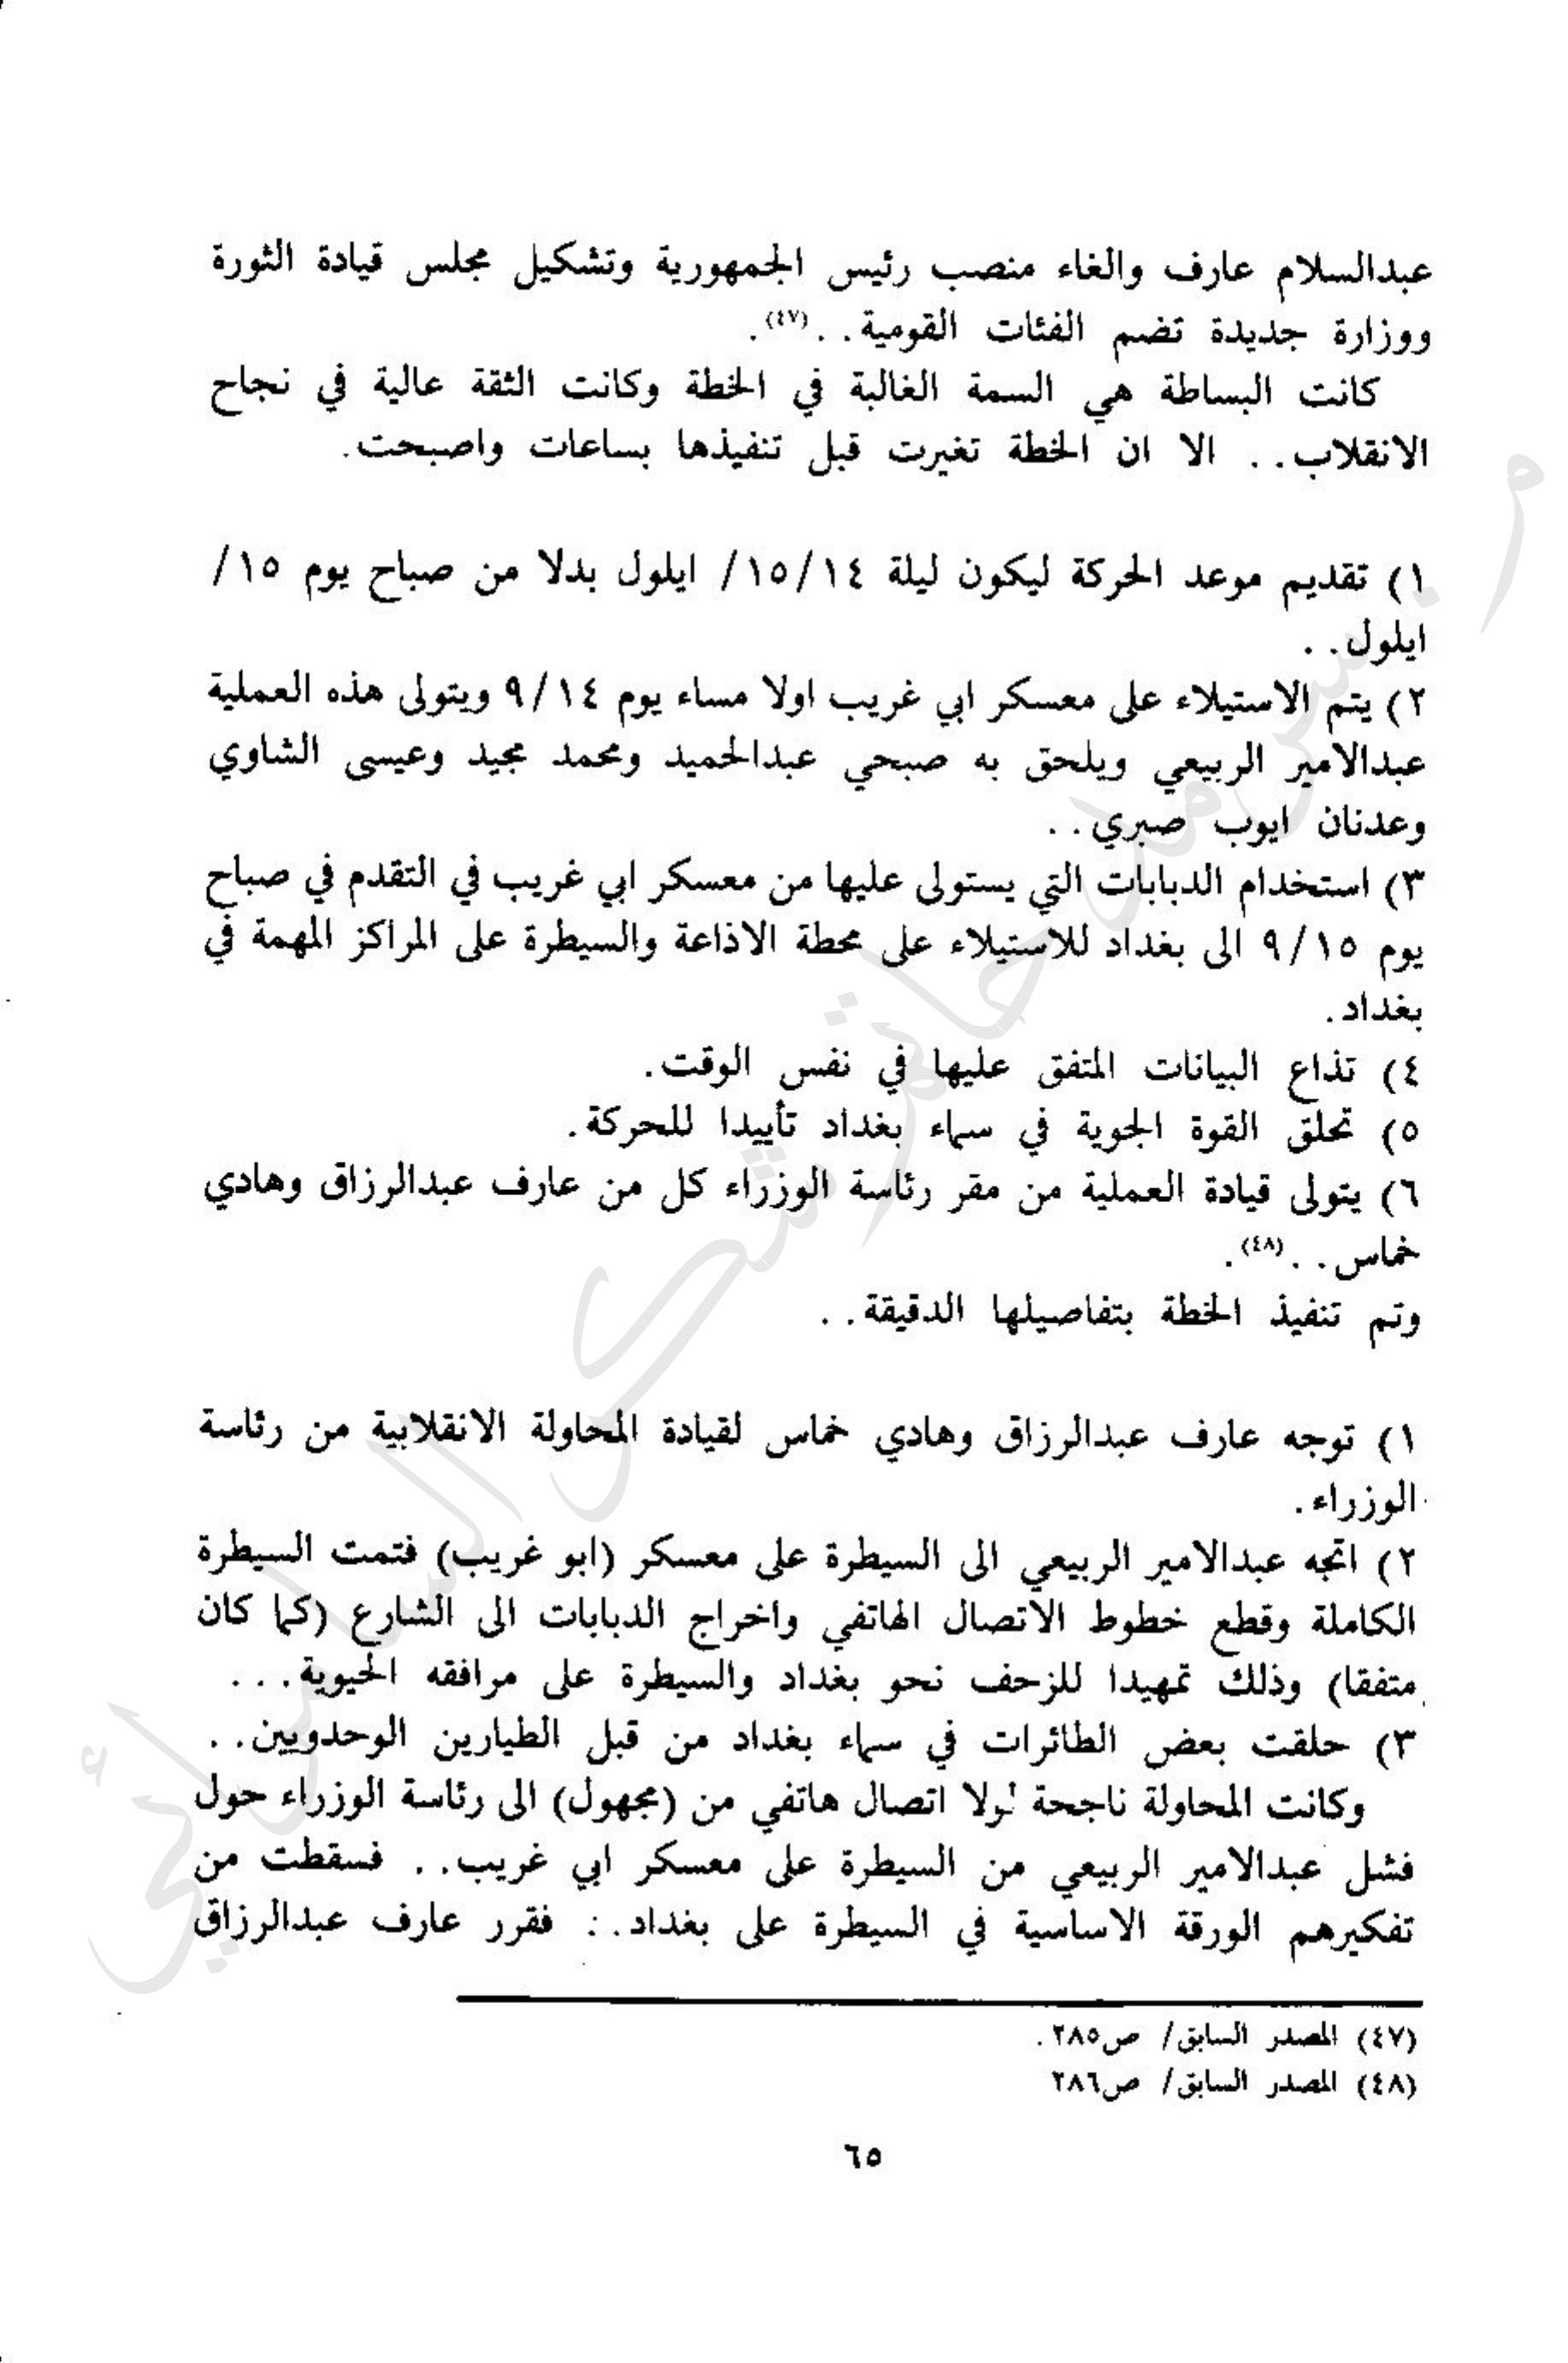 عبدالسلام عارف والغاء منصب رئيس الجمهورية وتشكيل مجلس قيادة الثورة
ووزارة جديدة تضم الفئات القومية. .(٤٧).
كانت البساطة هي السمة الغالبة في الخطة وكانت الثقة عالية في نجاح
الانقلاب. . الا ان الخطة تغيرت قبل تنفيذها بساعات واصبحت.
١) تقديم موعد الحركة ليكون ليلة ١٥/١٤/ ايلول بدلا من صباح يوم ١٥/
ايلول. .
٢) يتم الاستيلاء على معسكر ابي غريب اولا مساء يوم ٩/١٤ ويتولى هذه العملية
عبدالامير الربيعي ويلحق به صبحي عبدالحميد ومحمد مجيد وعيسى الشاوي
وعدنان ايوب صبري. .
٣) استخدام الدبابات التي يستولى عليها من معسكر ابي غريب في التقدم في صباح
يوم ٩/١٥ الى بغداد للاستيلاء على محطة الاذاعة والسيطرة على المراكز المهمة في
بغداد.
٤) تذاع البيانات المتفق عليها في نفس الوقت.
٥) تحلق القوة الجوية في سماء بغداد تأييدا للحركة.
٦) يتولى قيادة العملية من مقر رئاسة الوزراء كل من عارف عبدالرزاق وهادي
خماس. .(٤٨).
وتم تنفيذ الخطة بتفاصيلها الدقيقة. .
١) توجه عارف عبدالرزاق وهادي خماس لقيادة المحاولة الانقلابية من رئاسة
الوزراء.
٢) اتجه عبدالامير الربيعي الى السيطرة على معسكر (ابو غريب) فتمت السيطرة
الكاملة وقطع خطوط الاتصال الهاتفي واخراج الدبابات الى الشارع (كما كان
متفقا) وذلك تمهيدا للزحف نحو بغداد والسيطرة على مرافقه الحيوية. . .
٣) حلقت بعض الطائرات في سماء بغداد من قبل الطيارين الوحدويين. .
وكانت المحاولة ناجحة لولا اتصال هاتفي من (مجهول) الى رئاسة الوزراء حول
فشل عبدالامير الربيعي من السيطرة على معسكر ابي غريب. . فسقطت من
تفكيرهم الورقة الاساسية في السيطرة على بغداد. : فقرر عارف عبدالرزاق
(٤٧) المصدر السابق/ ص٢٨٥.
(٤٨) المصدر السابق/ ص٢٨٦
٦٥